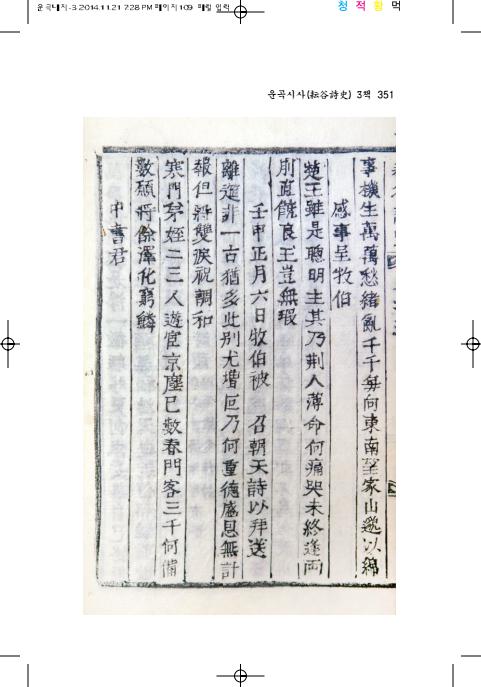 운곡내지-3 2014.11.21 7:28 PM 페이지109 매킨 입력
청 적 황 먹
운곡시사(耘谷詩史) 3책 351
事機生萬萬愁緖亂千千每向東南望家山邈以綿
感事呈牧伯
楚王雖是聰明主其乃荆人薄命何痛哭未終逢兩
刖直饒良玉豈無瑕
壬申正月六日牧伯被 召朝天詩以拜送
離筵非一古猶多此別尤堪叵乃何重德盛恩無計
報但將雙淚祝調和
寒門弟姪二三人遊宦京塵已數春門客三千何備
數願將餘澤化窮鱗
中書君